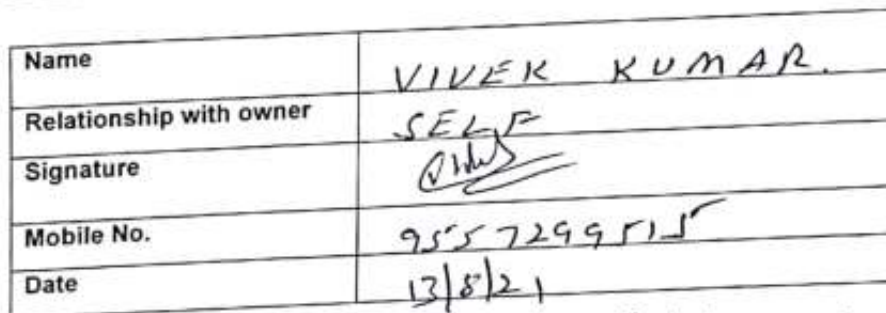 Name VIVEK KUMAR.
Relationship with owner SELF
Signature
Mobile No. 9557299515
Date 13/8/21